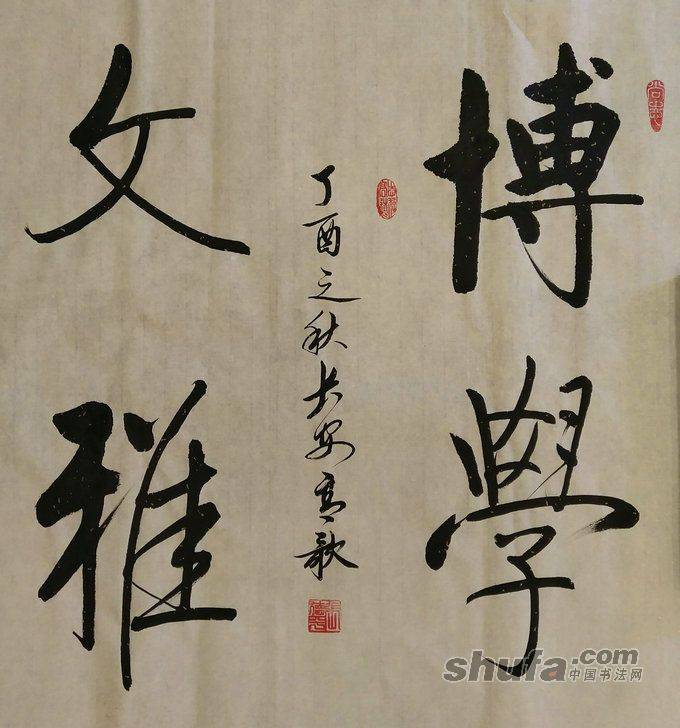 博學
文雅
丁酉之秋長安高歌
shufa.com
中国书法网